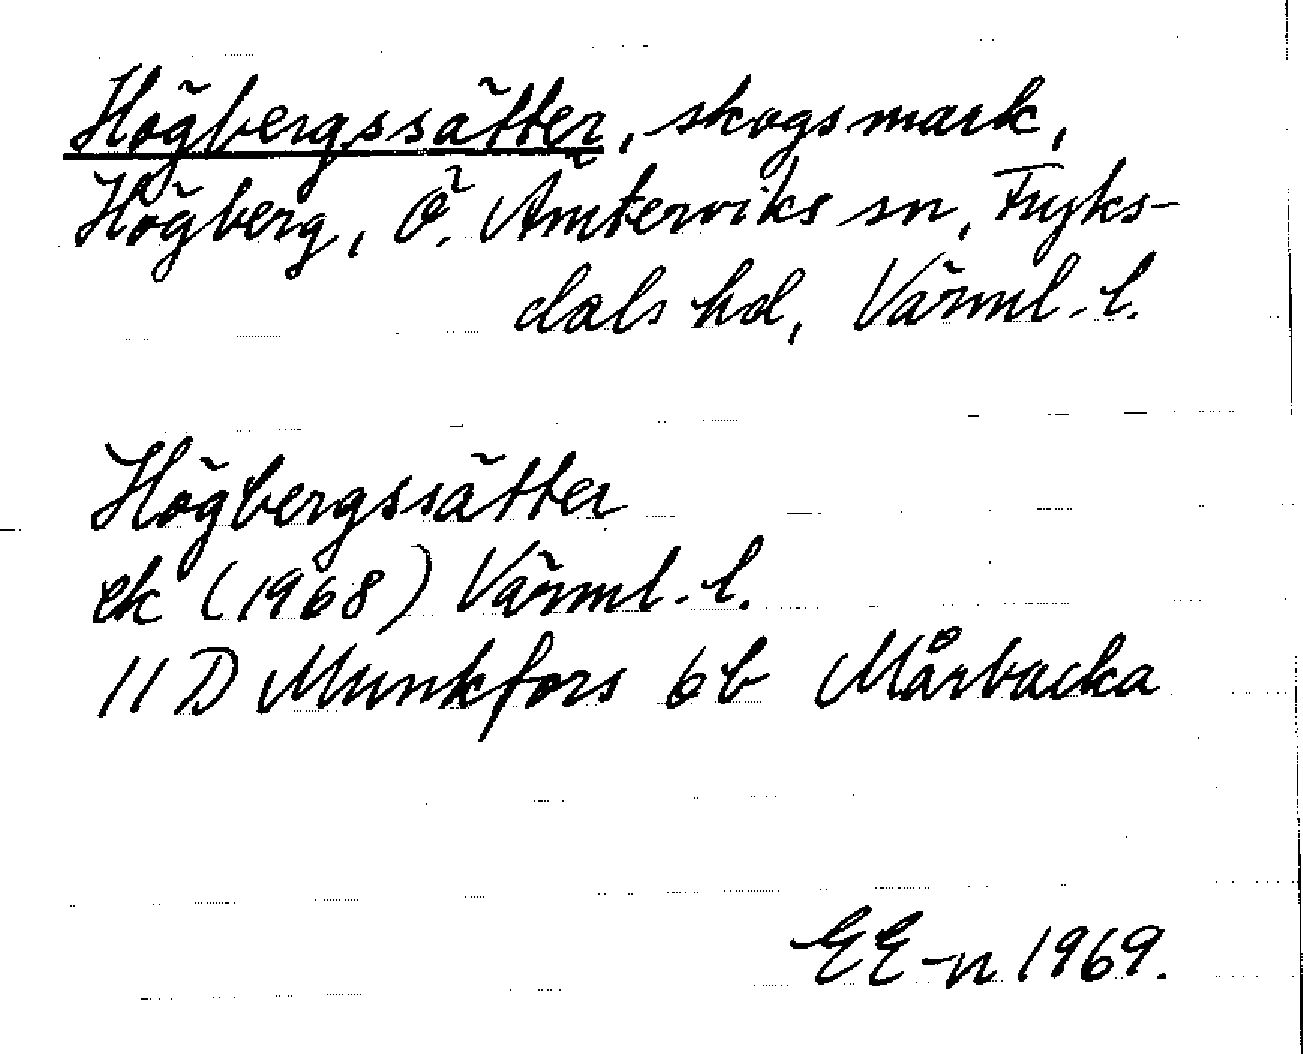 Högbergssätter, skogsmark,
Högberg, Ö. Ämterviks sn, Fryks-
dals hd, Värml. l.
Högbergssätter
ek (1968) Värml. l.
11 D Munkfors 6b Mårbacka
EE-n 1969.